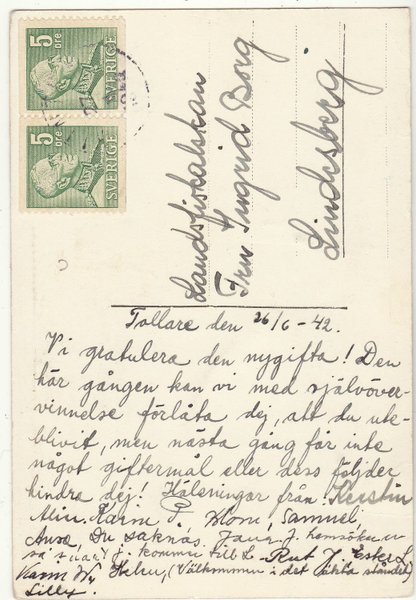 5 ÖRE
SVERIGE
5 ÖRE
SVERIGE
Landsfiskalskan
Fru Ingrid Borg
Lindesberg
Tollare den 26/6 - 42.
Vi gratulera den nygifta! Den
här gången kan vi med självöver-
vinnelse förlåta dej, att du ute-
blivit, men nästa gång får inte
något giftermål eller dess följder
hindra dej! Hälsningar från! Kerstin
Karin. Mom, Samuel,
Du saknas.
kommer till L. Rut J. Ester L.
Karin (Välkommen i det äkta ståndet)
Lilly.